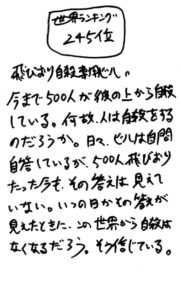 世界ランキング
245位
飛びおり自殺専用ビル。
今まで500人が彼の上から自殺
している。何故、人は自殺をする
のだろうか。日々、ビルは自問
自答しているが、500人飛びおり
たった今も、その答えは見えて
いない。いつの日かその答えが
見えたときに、この世界から自殺は
なくなるだろう。そう信じている。